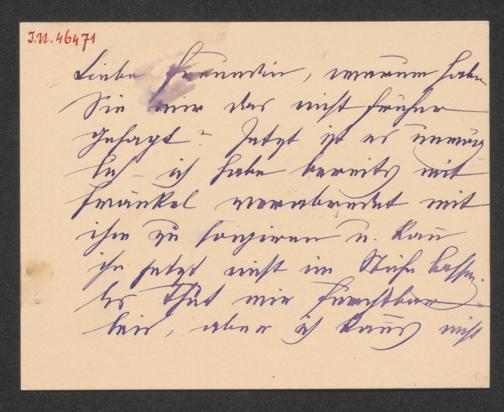 I.N. 46471
Liebe Freundin, warum haben
Sie mir das nicht früher
gesagt? Jetzt ist es unmög
lich – ich habe bereits mit
Fränkel verabredet mit
ihm zu soupiren u. kann
ihn jetzt nicht im Stiche lassen.
Es thut mir furchtbar
leid, aber ich kann nicht